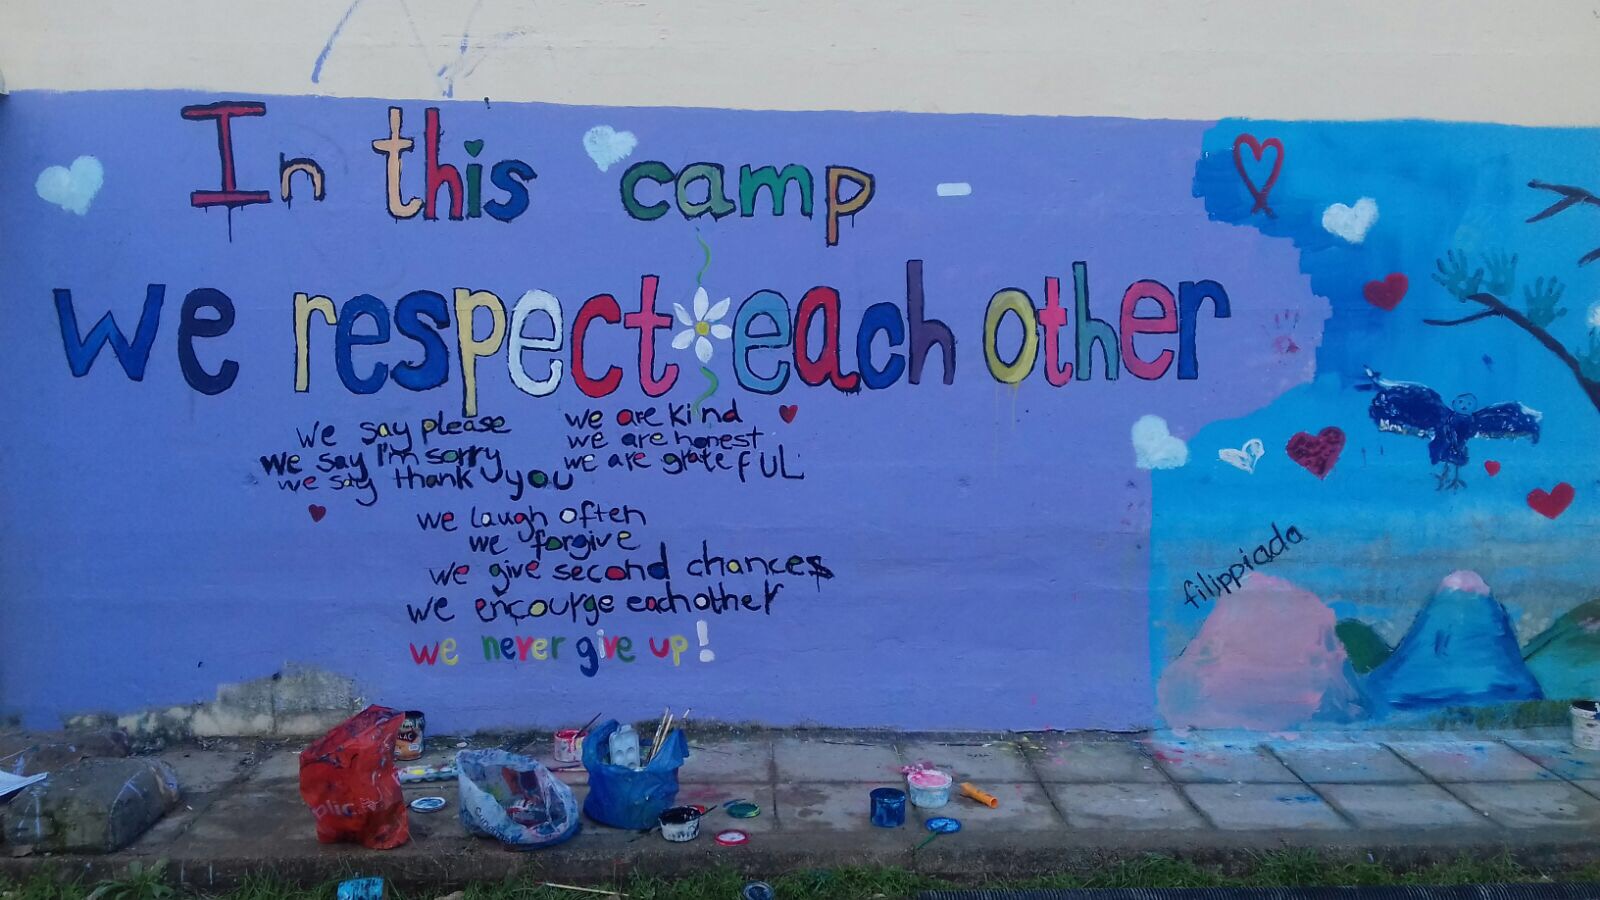 In this camp -
we respect each other
we say please
we say I'm sorry
we say thank you
we are kind
we are honest
we are grateful
we laugh often
we forgive
we give second chances
we encourge eachother
we never give up!
filippiada